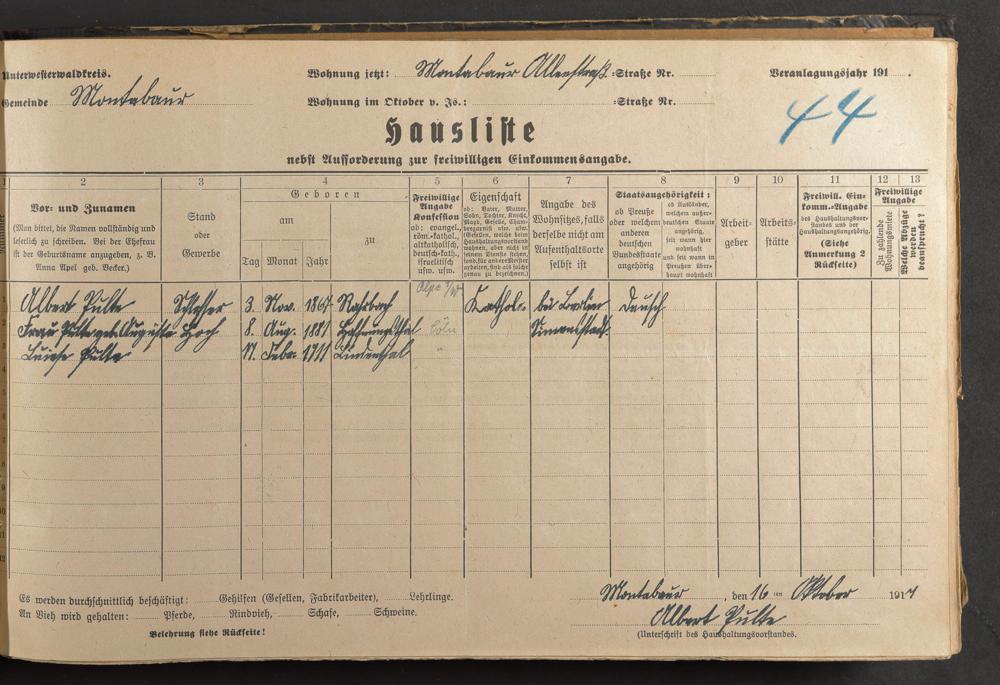 Unterwesterwaldkreis.
Wohnung jetzt: Montabaur Allenstraß -Straße Nr.
Veranlagungsjahr 191 .
Gemeinde Montabaur
Wohnung im Oktober v. Js.: -Straße Nr.
44
Hausliste
nebst Aufforderung zur freiwilligen Einkommensangabe.
1 2 3 4 5 6 7 8 9 10 11 12 13
Vor- und Zunamen
(Man bittet, die Namen vollständig und
leserlich zu schreiben. Bei der Ehefrau
ist der Geburtsname anzugeben, z. B.
Anna Apel geb. Becker.)
Stand
oder
Gewerbe
Geboren
am
zu
Tag Monat Jahr
Freiwillige
Angabe
Konfession
ob: evangel.,
röm.-kathol.,
altkatholisch,
deutsch-kath.,
israelitisch
usw. usw.
Eigenschaft
ob: Vater, Mutter,
Sohn, Tochter, Knecht,
Magd, Geselle, Cham-
bregarnist usw. usw.
(Gesellen, welche beim
Haushaltungsvorstand
wohnen, aber nicht in
seinem Dienste stehen,
sond. für anderen Meister
arbeiten, sind als solche
genau zu bezeichnen.)
Angabe des
Wohnsitzes, falls
derselbe nicht am
Aufenthaltsorte
selbst ist
Staatsangehörigkeit:
ob Preuße
oder welchem
anderen
deutschen
Bundesstaate
angehörig
ob Ausländer,
welchem außer-
deutschen Staate
angehörig,
seit wann hier
wohnhaft
und seit wann in
Preußen über-
haupt wohnhaft
Arbeit-
geber
Arbeits-
stätte
Freiwill. Ein-
komm.-Angabe
des Haushaltungsvor-
standes und der
Haushaltungsangehörig.
(Siehe
Anmerkung 2
Rückseite)
Freiwillige
Angabe
Zu zahlende
Wohnungsmiete
Welche Abzüge
werden
beansprucht?
Olpe
Albert Pulte Schlosser 3. Nov. 1867 Kathol. bei Berlin Deusch
Frau Pulte geb. Auguste Hoch 8. Aug. 1881 Cöln Simensstadt
Luise Pulte 17. Febr. 1911 Lindenthal "
Es werden durchschnittlich beschäftigt: Gehilfen (Gesellen, Fabrikarbeiter), Lehrlinge.
An Vieh wird gehalten: Pferde, Rindvieh, Schafe, Schweine.
Belehrung siehe Rückseite!
Montabaur, den 16 ten Oktober 1917
Albert Pulte
(Unterschrift des Haushaltungsvorstandes.